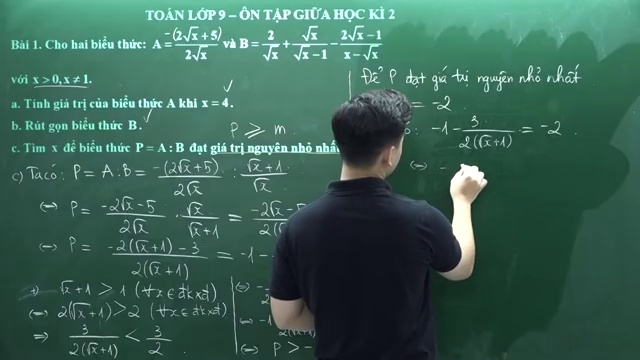 TOÁN LỚP 9 – ÔN TẬP GIỮA HỌC KÌ 2
Bài 1. Cho hai biểu thức: A = -(2√x + 5) / 2√x và B = 2/√x + √x/(√x − 1) − (2√x − 1)/(x − √x)
với x > 0, x ≠ 1.
a. Tính giá trị của biểu thức A khi x = 4. ✓
b. Rút gọn biểu thức B. ✓
P ≥ m
c. Tìm x để biểu thức P = A : B đạt giá trị nguyên nhỏ nhất
c) Ta có: P = A : B = -(2√x + 5) / 2√x : (√x + 1) / √x
⇔ P = (-2√x - 5) / 2√x . √x / (√x + 1) = (-2√x - 5) / 2(
⇔ P = (-2(√x + 1) - 3) / 2(√x + 1) = -1 -
√x + 1 > 1 (∀x ∈ đkxđ)
⇔ 2(√x + 1) > 2 (∀x ∈ đkxđ)
⇒ 3 / 2(√x + 1) < 3 / 2
⇔ P > -
Để P đạt giá trị nguyên nhỏ nhất
= -2
-1 - 3 / 2(√x + 1) = -2
⇔ -